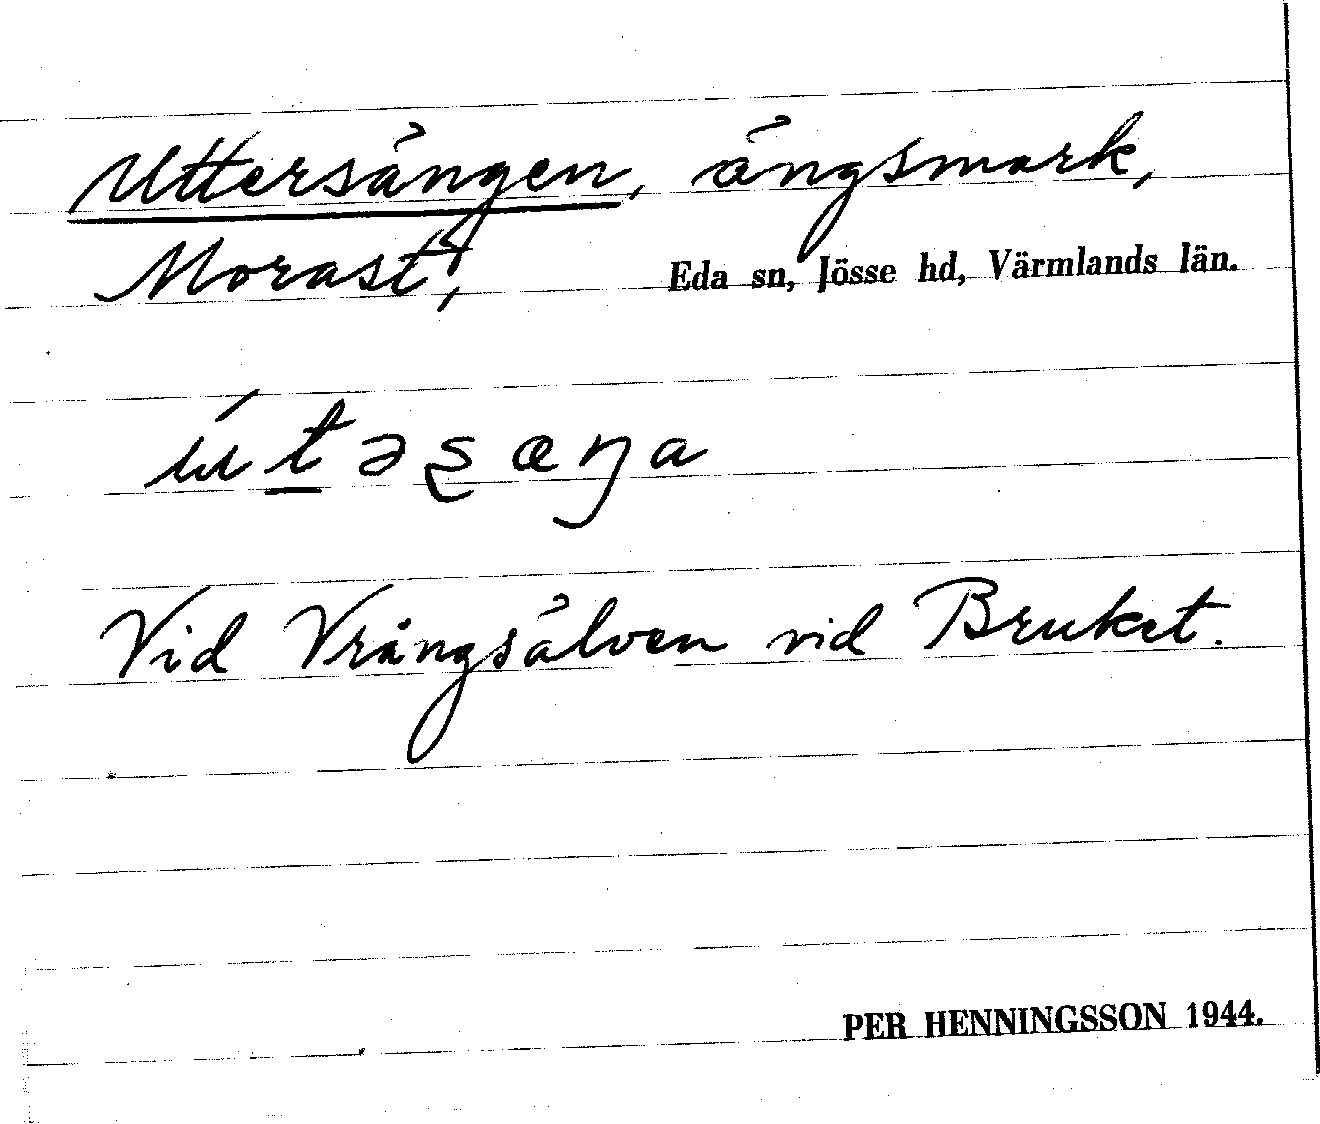 Uttersängen, ängsmark,
Morast, Eda sn, Jösse hd, Värmlands län.
Vid Vrångsälven vid Bruket.
PER HENNINGSSON 1944.